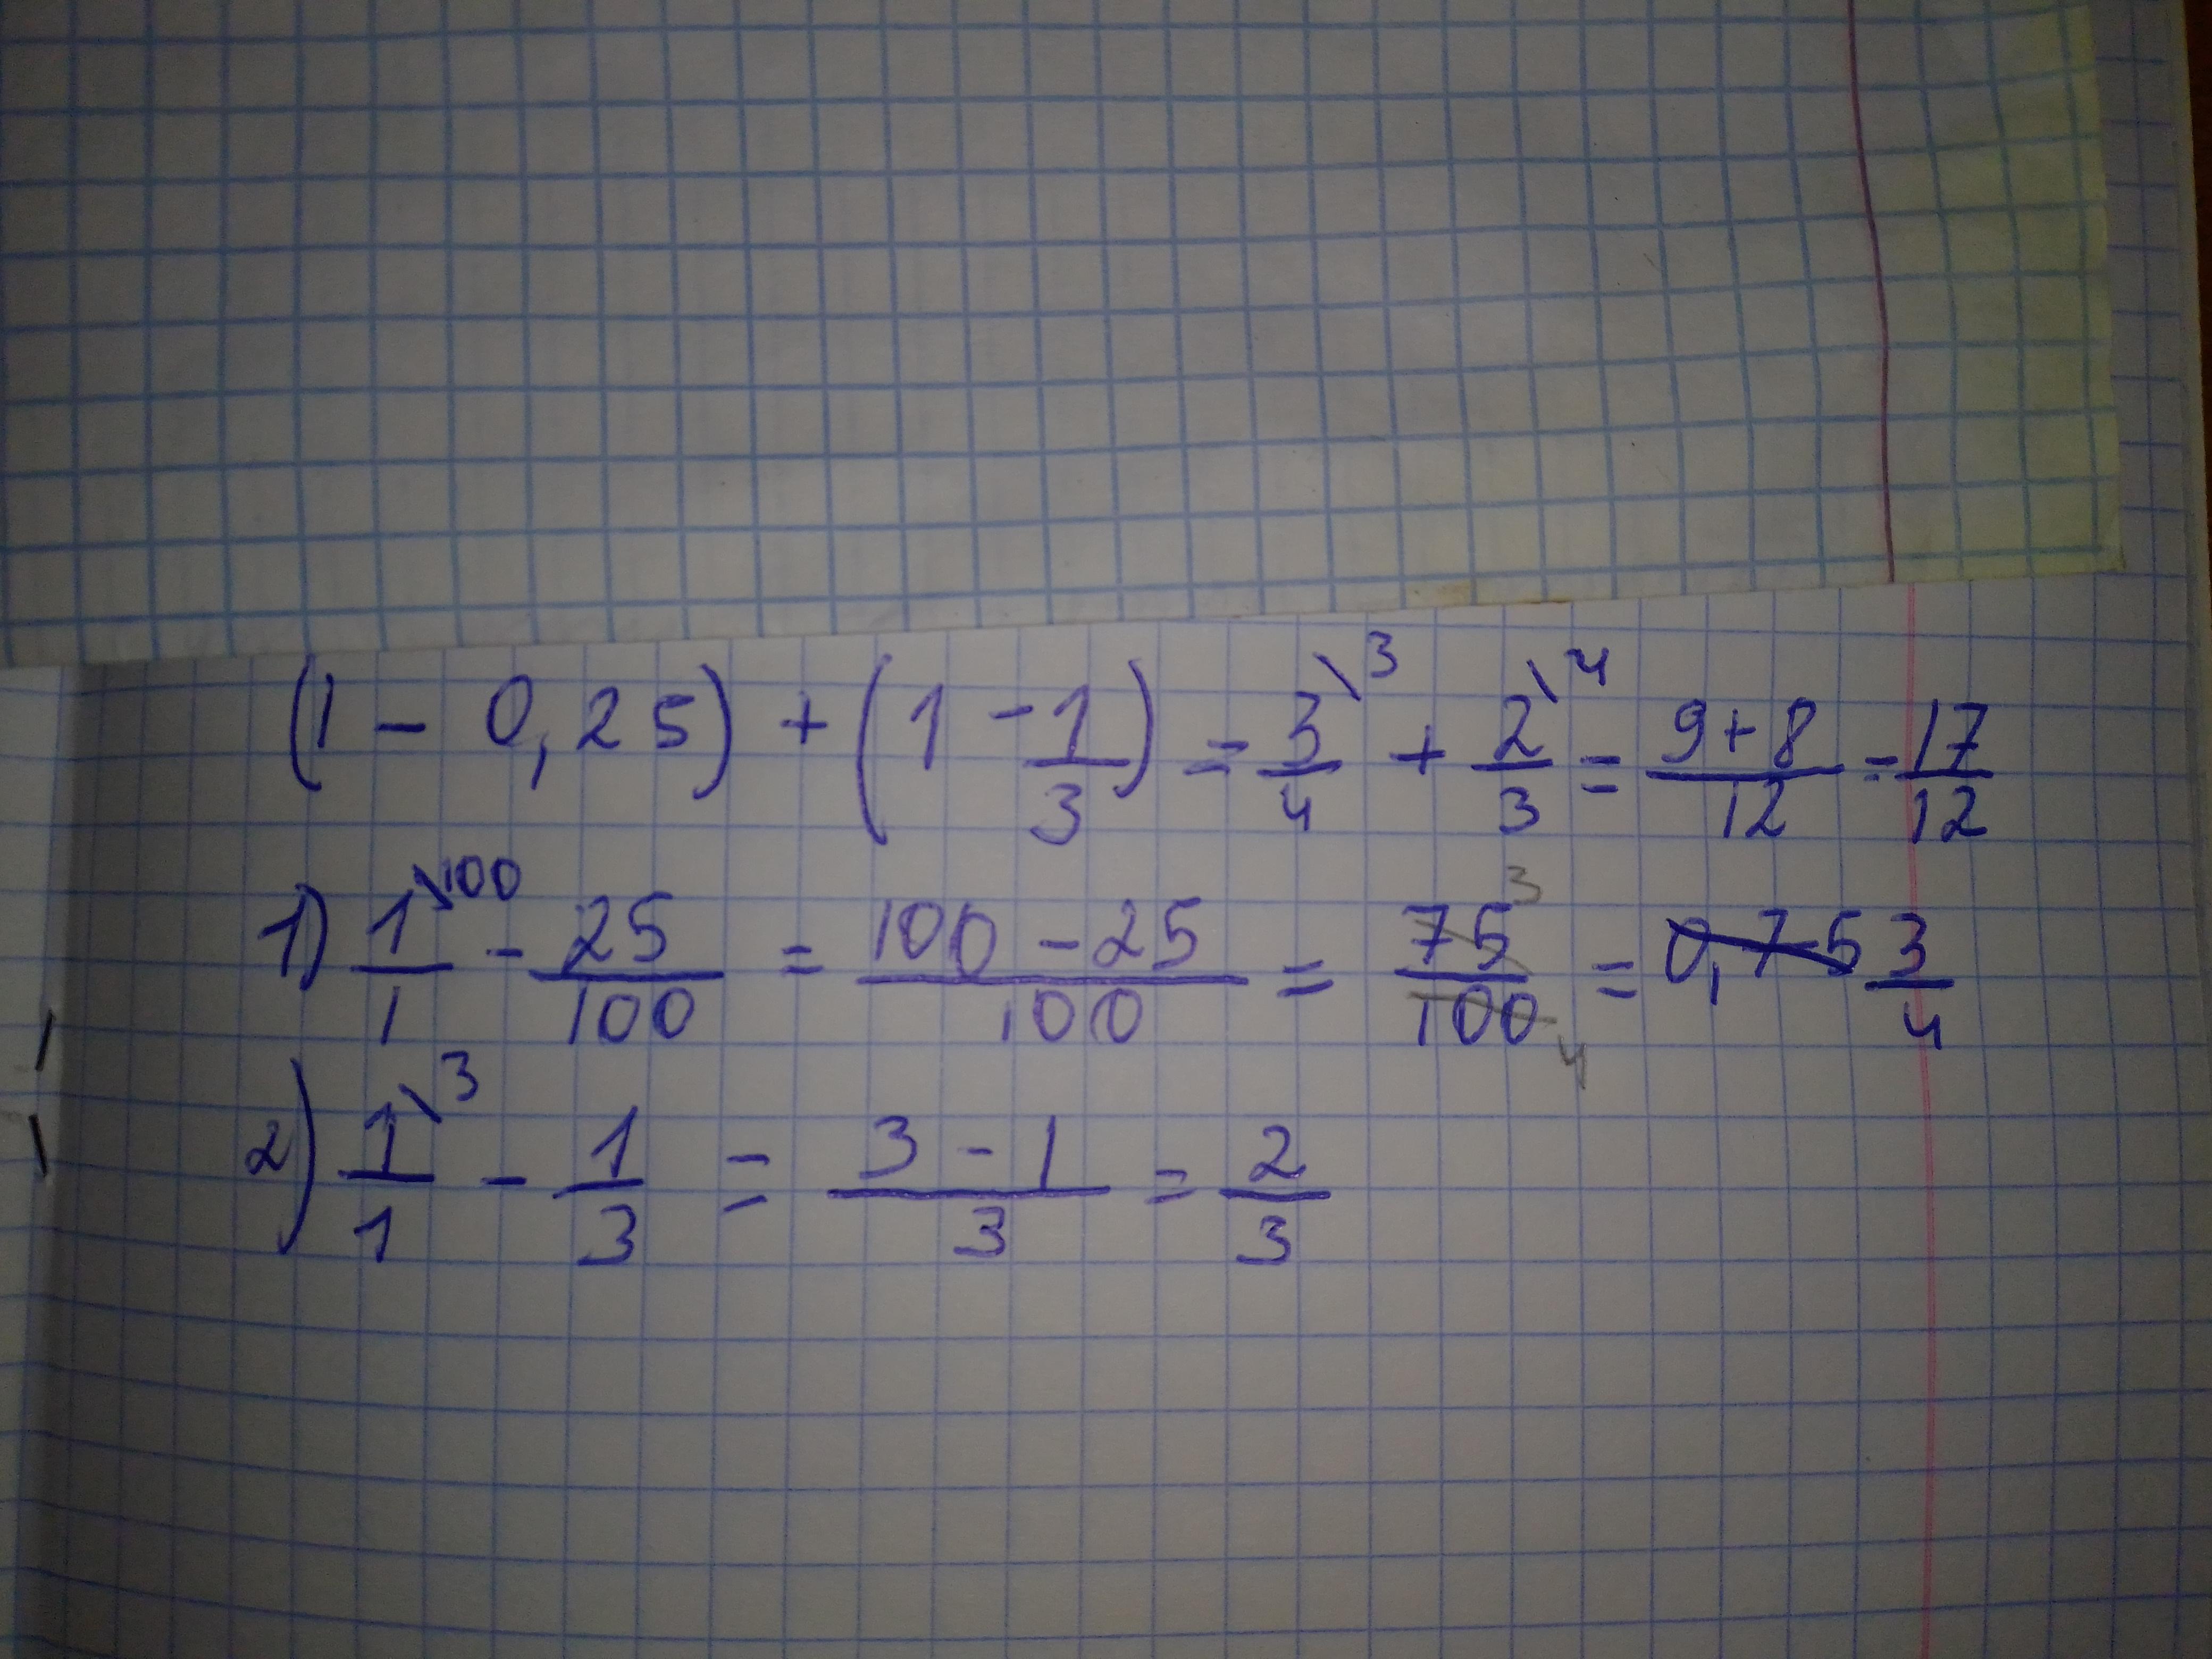 (1 - 0,25) + (1 - 1/3) = 3\3/4 + 2\4/3 = 9+8/12 = 17/12
1) 1\100/1 - 25/100 = 100-25/100 = 75 3/100 4 = 0,75 3/4
2) 1\3/1 - 1/3 = 3-1/3 = 2/3